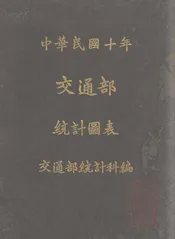 中華民國十年
交通部
統計圖表
交通部統計科編